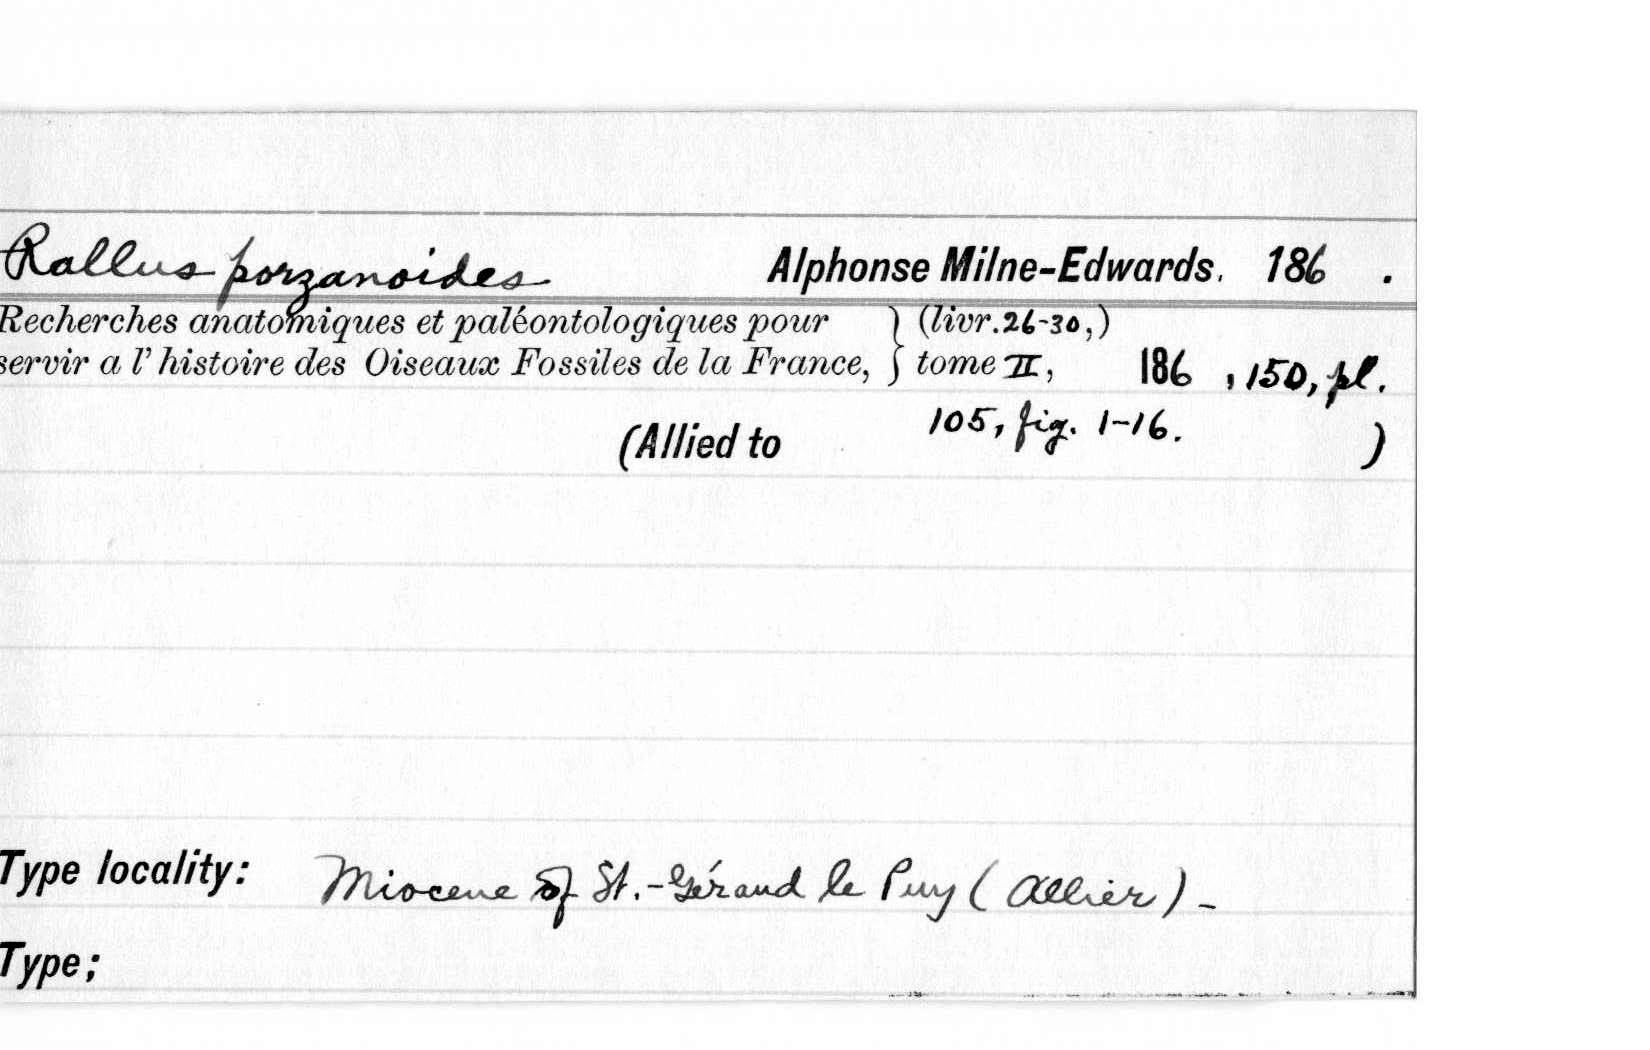 Rallus porzanoides Alphonse Milne-Edwards. 186 .
Recherches anatomiques et paléontologiques pour } (livr. 26-30,)
servir a l' histoire des Oiseaux Fossiles de la France, } tome II, 186 , 150, pl.
105, fig. 1-16.
(Allied to )
Type locality: Miocene of St.-Gérand le Puy (Allier) -
Type;